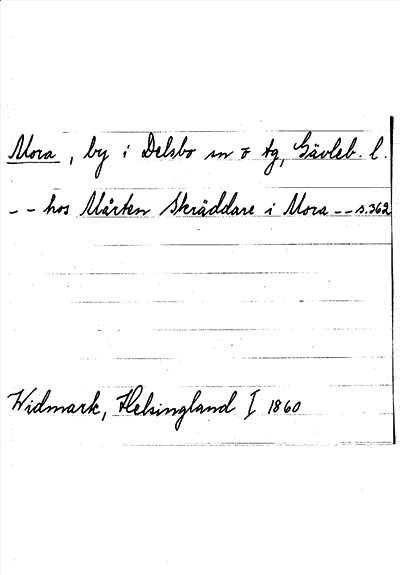 Mora, by i Delsbo sn o tg, Gävleb. l.
-- hos Mårten Skräddare i Mora -- s.362
Widmark, Helsingland I 1860